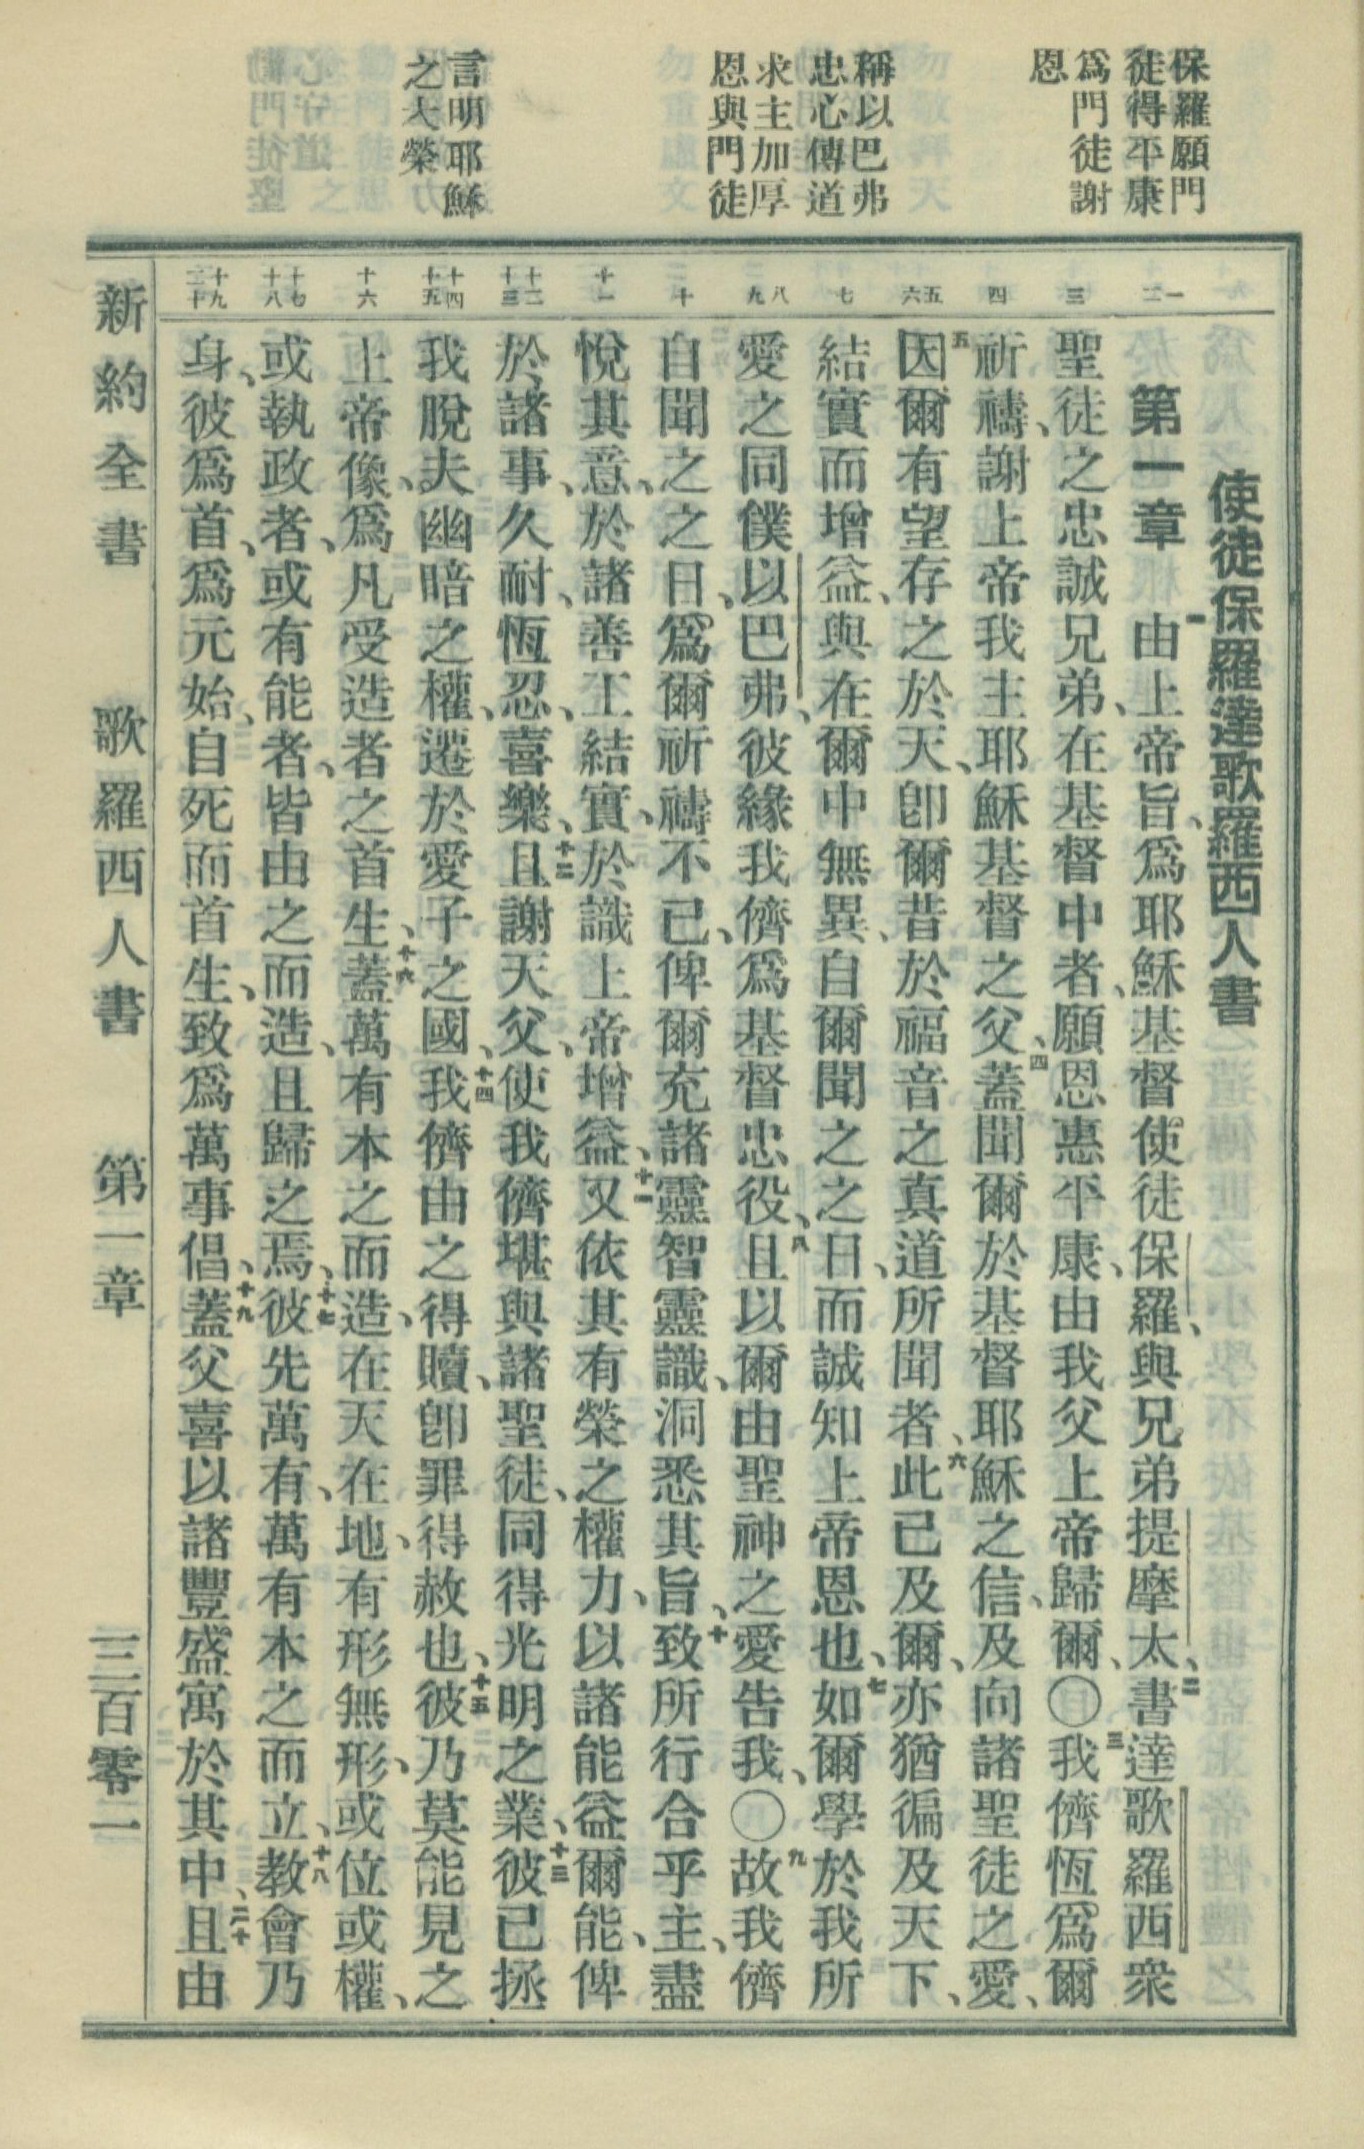 保羅願門
徒得平康
爲門徒謝
恩
稱以巴弗
忠心傳道
求主加厚
恩與門徒
言明耶穌
之大榮
一
二
三
四
五
六
七
八
九
十
十一
十二
十三
十四
十五
十六
十七
十八
十九
二十
使徒保羅達歌羅西人書
第一章 一由上帝旨、爲耶穌基督使徒保羅、與兄弟提摩太、二書達歌羅西衆
聖徒之忠誠兄弟、在基督中者、願恩惠平康、由我父上帝歸爾、〇三我儕恆爲爾
祈禱、謝上帝我主耶穌基督之父、四蓋聞爾於基督耶穌之信、及向諸聖徒之愛、
五因爾有望存之於天、卽爾昔於福音之真道所聞者、六此已及爾、亦猶徧及天下、
結實而增益、與在爾中無異、自爾聞之之日、而誠知上帝恩也、七如爾學於我所
愛之同僕以巴弗、彼緣我儕爲基督忠役、八且以爾由聖神之愛告我、〇九故我儕
自聞之之日、爲爾祈禱不已、俾爾充諸靈智靈識、洞悉其旨、十致所行合乎主、盡
悅其意、於諸善工結實、於識上帝增益、十一又依其有榮之權力、以諸能益爾能、俾
於諸事、久耐、恆忍、喜樂、十二且謝天父、使我儕堪與諸聖徒、同得光明之業、十三彼已拯
我脫夫幽暗之權、遷於愛子之國、十四我儕由之得贖、卽罪得赦也、十五彼乃莫能見之
上帝像、爲凡受造者之首生、十六蓋萬有本之而造、在天在地、有形無形、或位或權、
或執政者、或有能者、皆由之而造、且歸之焉、十七彼先萬有、萬有本之而立、十八教會乃
身、彼爲首、爲元始、自死而首生、致爲萬事倡、十九蓋父喜以諸豐盛寓於其中、二十且由
新約全書 歌羅西人書 第一章 三百零二